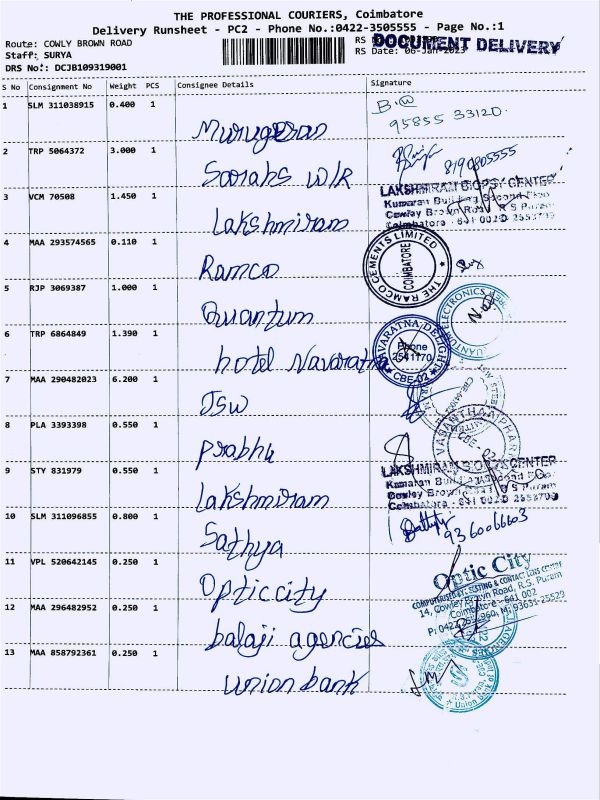 THE PROFESSIONAL COURIERS, Coimbatore
Delivery Runsheet - PC2 - Phone No.:0422-3505555 - Page No.:1
Route: COWLY BROWN ROAD
RS
DOCUMENT DELIVERY
Staff: SURYA
RS Date: 06-Jan-2023
DRS No.: DCJB109319001
S No Consignment No Weight PCS Consignee Details Signature
1 SLM 311038915 0.400 1 Murugesan
95855 33120
2 TRP 5064372 3.000 1 Sarahs W/R
8190805555
3 VCM 70508 1.450 1 Lakshmiram
LAKSHMIRAM BIOPSY CENTER
Kumaran Building Second Floor
Cowley Brown Road R S Puram
Coimbatore - 641 002
4 MAA 293574565 0.110 1 Ramco
THE RAMCO CEMENTS LIMITED
COIMBATORE
5 RJP 3069387 1.000 1 Quantum
QUANTUM ELECTRONICS
6 TRP 6864849 1.390 1 hotel Navaratna
NAVARATNA DELIGHT
Phone
2541170
CBE-02
7 MAA 290482023 6.200 1 JSW
8 PLA 3393398 0.550 1 Prabhu
VASANTHAA PHAR
9 STY 831979 0.550 1 Lakshmiram
LAKSHMIRAM BIOPSY CENTER
Kumaran Building Second Floor
Cowley Brown Road R S Puram
Coimbatore - 641 002
10 SLM 311096855 0.800 1 Sathya
9360066603
11 VPL 520642145 0.250 1 Opticcity
Optic City
COMPUTERISED EYE TESTING & CONTACT LENS CENTRE
14, Cowley Brown Road, R.S. Puram
Coimbatore - 641 002
M: 93635-25529
12 MAA 296482952 0.250 1 balaji agencies
AGENCIES
13 MAA 858792361 0.250 1 Union bank
Union Bank